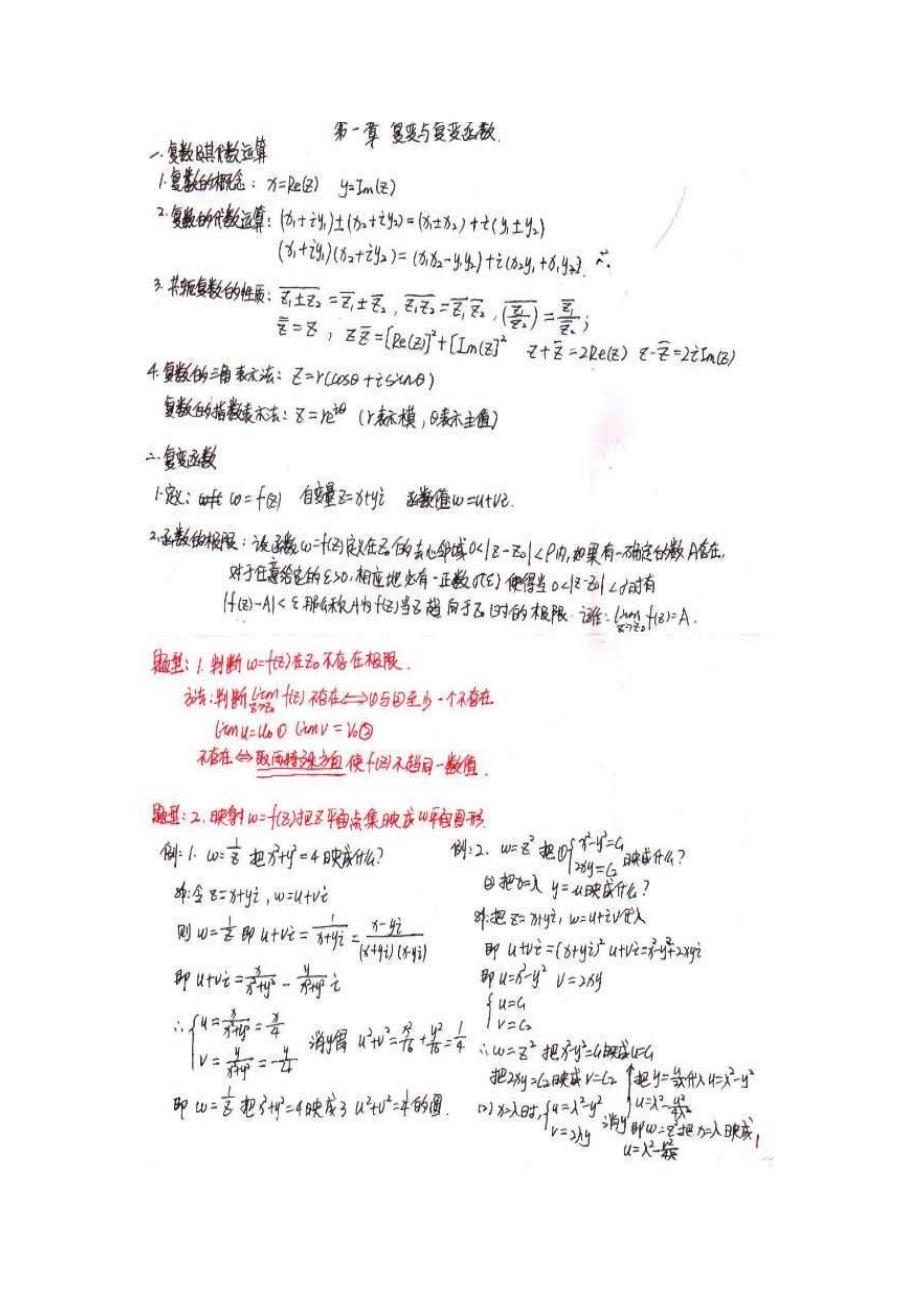 第一章 复变与复变函数.
一、复数及其代数运算
1. 复数的概念: x=Re(z) y=Im(z)
2. 复数的代数运算: (x₁+iy₁)±(x₂+iy₂)=(x₁±x₂)+i(y₁±y₂)
(x₁+iy₁)(x₂+iy₂)=(x₁x₂-y₁y₂)+i(x₂y₁+x₁y₂)
3. 共轭复数的性质: \overline{z₁±z₂}=\overline{z₁}±\overline{z₂}, \overline{z₁z₂}=\overline{z₁}\,\overline{z₂}, \overline{(z₁/z₂)}=\overline{z₁}/\overline{z₂};
\overline{\overline{z}}=z, z\overline{z}=[Re(z)]²+[Im(z)]² z+\overline{z}=2Re(z) z-\overline{z}=2iIm(z)
4. 复数的三角表示法: z=r(cosθ+isinθ)
复数的指数表示法: z=re^{iθ} (r表示模, θ表示主值)
二. 复变函数
1. 定义: w=f(z) 自变量z=x+yi 函数值w=u+vi.
2. 函数的极限: 设函数w=f(z)定义在z₀的去心邻域0<|z-z₀|<ρ内, 如果有一确定的数A存在,
对于任意给定的ε>0, 相应地必有一正数δ(ε) 使得当0<|z-z₀|<δ时有
|f(z)-A|<ε 那么称A为f(z)当z趋向于z₀时的极限. 记作: lim_{z→z₀} f(z)=A.
题型: 1. 判断w=f(z)在z₀不存在极限.
方法: 判断lim_{z→z₀} f(z)不存在⟺①与②至少一个不存在
lim u=u₀① lim v=v₀②
不存在⟺取两特殊方向使f(z)不趋同一数值.
题型: 2. 映射w=f(z)把z平面点集映成w平面图形.
例: 1. w=1/z 把x²+y²=4映成什么?
解: 令z=x+yi, w=u+vi
则w=1/z 即u+vi=1/(x+yi)=(x-yi)/((x+yi)(x-yi))
即u+vi=x/(x²+y²)-y/(x²+y²)i
∴{u=x/(x²+y²)=x/4
v=y/(x²+y²)=-y/4 消y得 u²+v²=x²/16+y²/16=1/4
即w=1/z 把x²+y²=4映成了u²+v²=1/4的圆.
例: 2. w=z² 把①{x²-y²=C₁
2xy=C₂ 映成什么?
②把x=λ y=u映成什么?
解: 把z=x+yi, w=u+iv代入
即u+vi=(x+yi)² u+vi=x²-y²+2xyi
即u=x²-y² v=2xy
{u=C₁
v=C₂
∴w=z² 把x²-y²=C₁映成u=C₁
把2xy=C₂映成v=C₂
(2) x=λ时, {u=λ²-y²
v=2λy 消y
{把y=v/2λ代入u=λ²-y²
u=λ²-v²/4λ²
即w=z²把x=λ映成
u=λ²-v²/4λ²
1